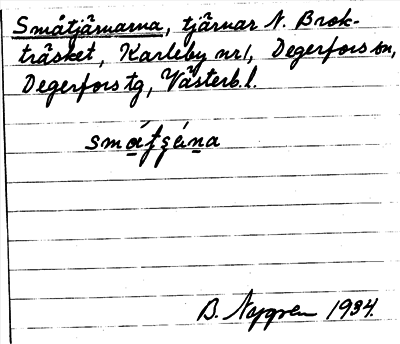 Småtjärnarna, tjärnar N. Brok-
träsket, Karleby nr 1, Degerfors sn,
Degerfors tg, Västerb. l.
B. 1934.